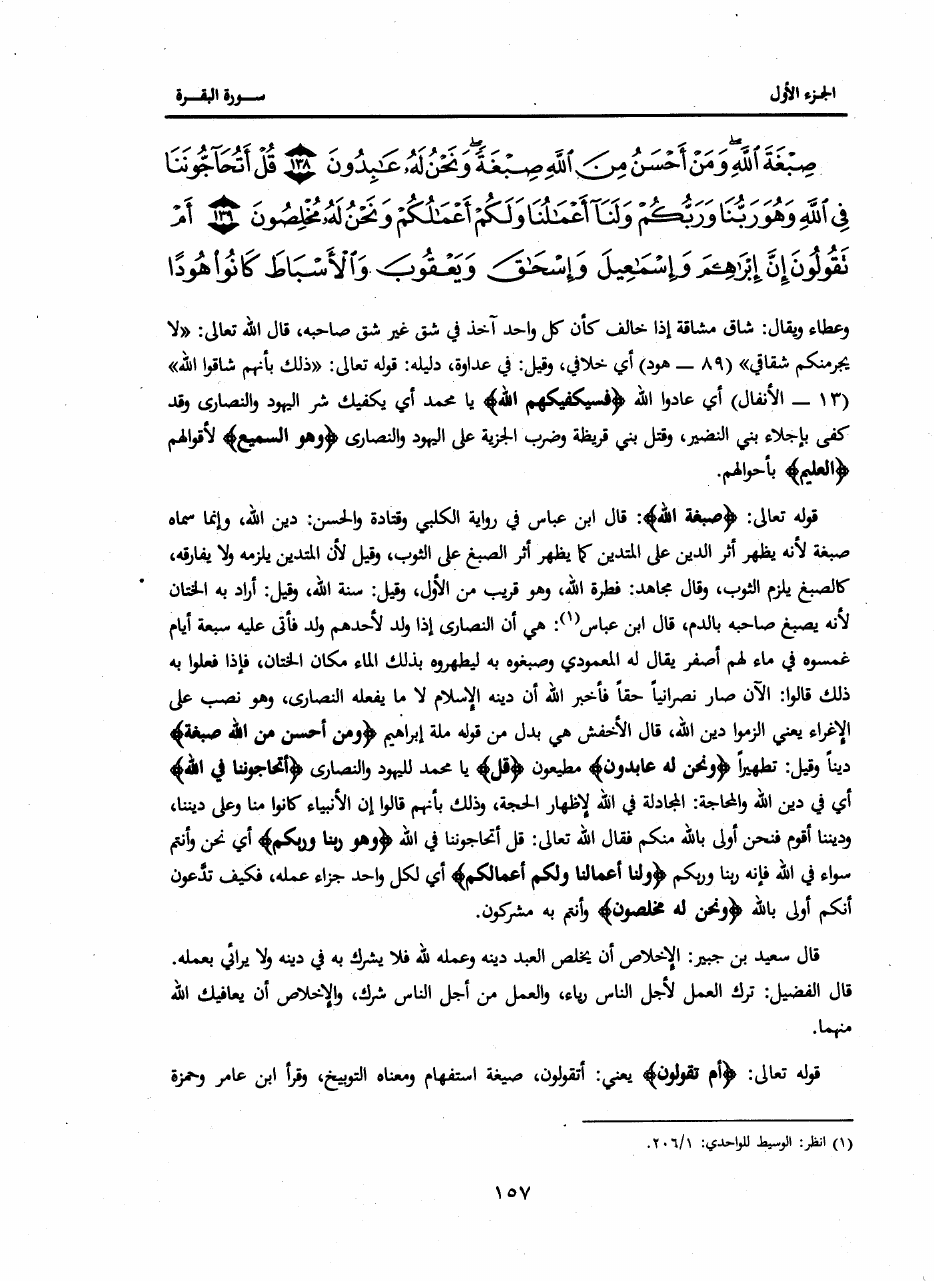 الجزء الأول
سورة البقرة
صِبْغَةَ ٱللَّهِ وَمَنْ أَحْسَنُ مِنَ ٱللَّهِ صِبْغَةً وَنَحْنُ لَهُۥ عَـٰبِدُونَ ﴿١٣٨﴾ قُلْ أَتُحَآجُّونَنَا
فِى ٱللَّهِ وَهُوَ رَبُّنَا وَرَبُّكُمْ وَلَنَآ أَعْمَـٰلُنَا وَلَكُمْ أَعْمَـٰلُكُمْ وَنَحْنُ لَهُۥ مُخْلِصُونَ ﴿١٣٩﴾ أَمْ
تَقُولُونَ إِنَّ إِبْرَٰهِـۧمَ وَإِسْمَـٰعِيلَ وَإِسْحَـٰقَ وَيَعْقُوبَ وَٱلْأَسْبَاطَ كَانُوا۟ هُودًا
وعطاء ويقال: شاق مشاقة إذا خالف كأن كل واحد آخذ في شق غير شق صاحبه، قال الله تعالى: «لا
يجرمنكم شقاقي» (٨٩ ــ هود) أي خلافي، وقيل: في عداوة، دليله: قوله تعالى: «ذلك بأنهم شاقوا الله»
(١٣ ــ الأنفال) أي عادوا الله ﴿فسيكفيكهم الله﴾ يا محمد أي يكفيك شر اليهود والنصارى وقد
كفى بإجلاء بني النضير، وقتل بني قريظة وضرب الجزية على اليهود والنصارى ﴿وهو السميع﴾ لأقوالهم
﴿العليم﴾ بأحوالهم.
قوله تعالى: ﴿صبغة الله﴾: قال ابن عباس في رواية الكلبي وقتادة والحسن: دين الله، وإنما سماه
صبغة لأنه يظهر أثر الدين على المتدين كما يظهر أثر الصبغ على الثوب، وقيل لأن المتدين يلزمه ولا يفارقه،
كالصبغ يلزم الثوب، وقال مجاهد: فطرة الله، وهو قريب من الأول، وقيل: سنة الله، وقيل: أراد به الختان
لأنه يصبغ صاحبه بالدم، قال ابن عباس(١): هي أن النصارى إذا ولد لأحدهم ولد فأتى عليه سبعة أيام
غمسوه في ماء لهم أصفر يقال له المعمودي وصبغوه به ليطهروه بذلك الماء مكان الختان، فإذا فعلوا به
ذلك قالوا: الآن صار نصرانياً حقاً فأخبر الله أن دينه الإسلام لا ما يفعله النصارى، وهو نصب على
الإغراء يعني الزموا دين الله، قال الأخفش هي بدل من قوله ملة إبراهيم ﴿ومن أحسن من الله صبغة﴾
ديناً وقيل: تطهيراً ﴿ونحن له عابدون﴾ مطيعون ﴿قل﴾ يا محمد لليهود والنصارى ﴿أتحاجوننا في الله﴾
أي في دين الله والمحاجة: المجادلة في الله لإظهار الحجة، وذلك بأنهم قالوا إن الأنبياء كانوا منا وعلى ديننا،
وديننا أقوم فنحن أولى بالله منكم فقال الله تعالى: قل أتحاجوننا في الله ﴿وهو ربنا وربكم﴾ أي نحن وأنتم
سواء في الله فإنه ربنا وربكم ﴿ولنا أعمالنا ولكم أعمالكم﴾ أي لكل واحد جزاء عمله، فكيف تدَّعون
أنكم أولى بالله ﴿ونحن له مخلصون﴾ وأنتم به مشركون.
قال سعيد بن جبير: الإخلاص أن يخلص العبد دينه وعمله لله فلا يشرك به في دينه ولا يرائي بعمله.
قال الفضيل: ترك العمل لأجل الناس رياء، والعمل من أجل الناس شرك، والإخلاص أن يعافيك الله
منهما.
قوله تعالى: ﴿أم تقولون﴾ يعني: أتقولون، صيغة استفهام ومعناه التوبيخ، وقرأ ابن عامر وحمزة
(١) انظر: الوسيط للواحدي: ٢٠٦/١.
١٥٧